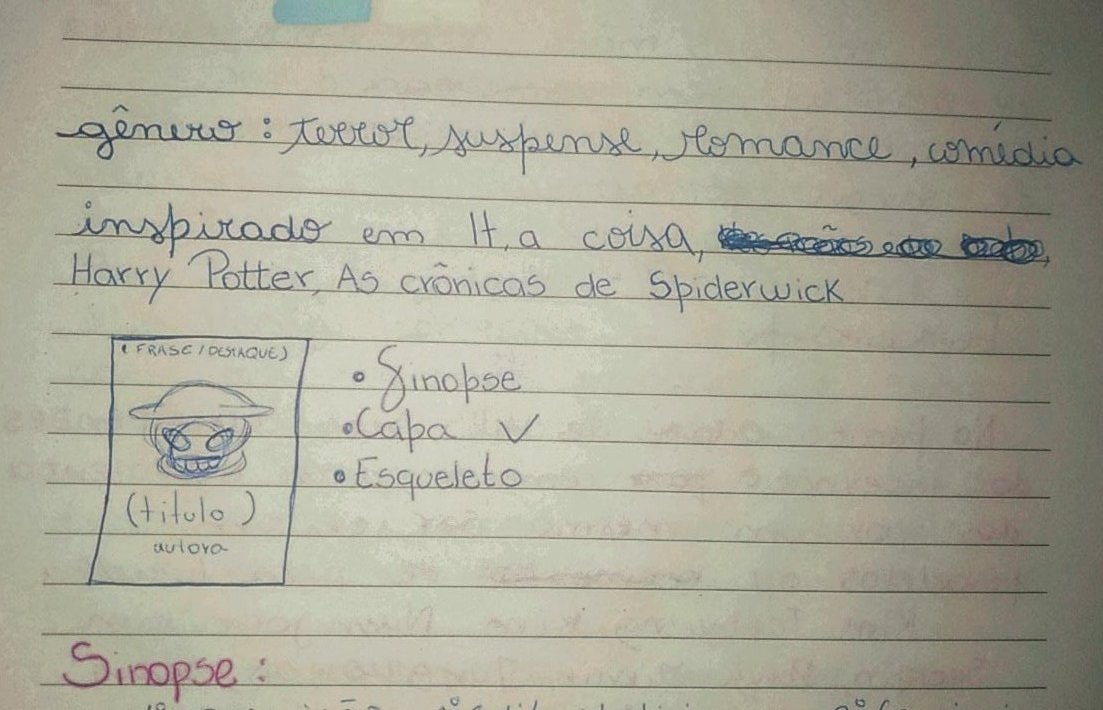 gênero: terror, suspense, romance, comédia
inspirado em It, a coisa,
Harry Potter, As crônicas de Spiderwick
(FRASE/DESTAQUE)
(titulo)
autora
• Sinopse
• Capa ✓
• Esqueleto
Sinopse: